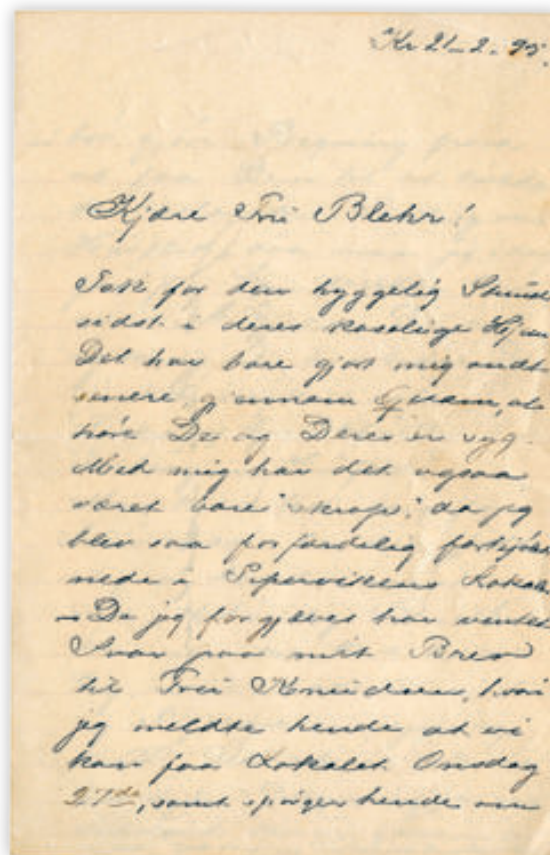 Kr 21-2-95.
Kjære Fru Blehr!
Tak for den hyggelig Stund
sidst i deres koselige Hjem
Det har bare gjort mig ondt
senere gjennem at
høre De og Deres er syg.
Med mig har det ogsaa
været bare "skrap", da jeg
blev saa forfærdelig forkjølet
nede i Pipervikens Lokale
– Da jeg forgjæves har ventet
Svar paa mit Brev
til Fru Knudsen, hvori
jeg meldte hende at vi
kan faa Lokalet Onsdag
27de, samt spørger hende om